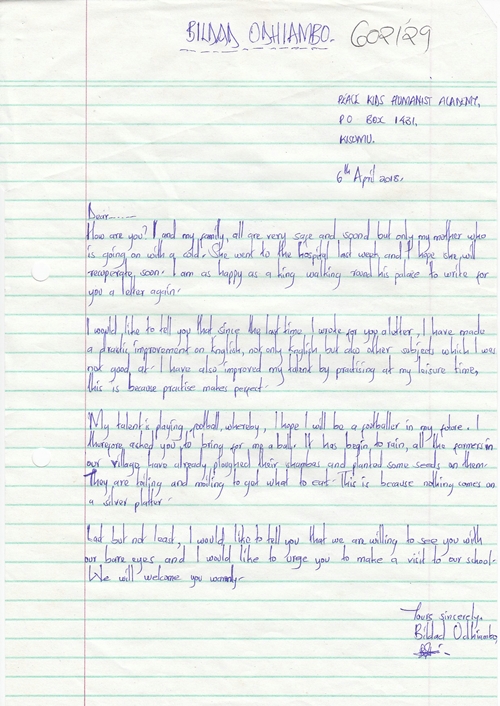 BILDAD ODHIAMBO. G02/29
PEACE KIDS HUMANIST ACADEMY,
P.O BOX 1431,
KISUMU.
6th April 2018.
Dear........
How are you? I and my family, all are very safe and sound but only my mother who
is going on with a cold. She went to the hospital last week and I hope she will
recuperate soon. I am as happy as a king walking round his palace to write for
you a letter again.
I would like to tell you that since the last time I wrote for you a letter, I have made
a drastic improvement on English, not only English but also other subjects which I was
not good at. I have also improved my talent by practising at my leisure time,
this is because practise makes perfect.
My talent is playing football, whereby, I hope I will be a footballer in my future. I
therefore asked you to bring for me a ball. It has begin to rain, all the farmers in
our village have already ploughed their shambas and planted some seeds on them.
They are toiling and moiling to get what to eat. This is because nothing comes on
a silver platter.
Last but not least, I would like to tell you that we are willing to see you with
our bare eyes and I would like to urge you to make a visit to our school.
We will welcome you warmly.
Yours sincerely,
Bildad Odhiambo,